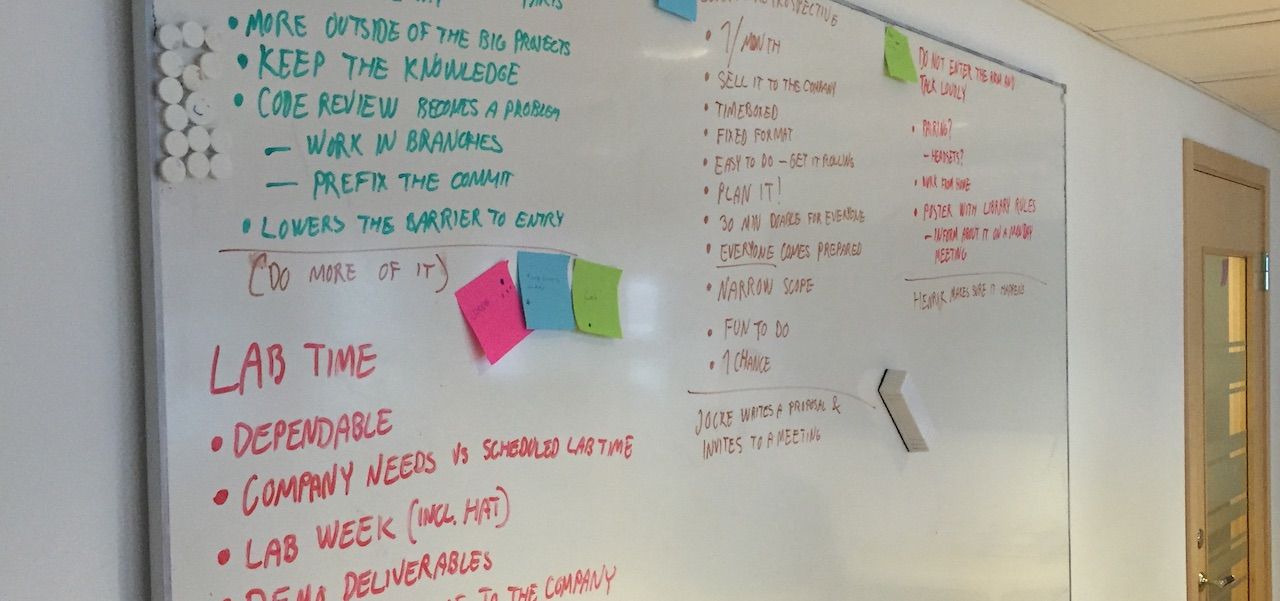 • MORE OUTSIDE OF THE BIG PROJECTS
• KEEP THE KNOWLEDGE
• CODE REVIEW BECOMES A PROBLEM
— WORK IN BRANCHES
— PREFIX THE COMMIT
• LOWERS THE BARRIER TO ENTRY
(DO MORE OF IT)
LAB TIME
• DEPENDABLE
• COMPANY NEEDS VS SCHEDULED LAB TIME
• LAB WEEK (INCL. HAT)
• DEMO DELIVERABLES
TO THE COMPANY
RETROSPECTIVE
• 1/MONTH
• SELL IT TO THE COMPANY
• TIMEBOXED
• FIXED FORMAT
• EASY TO DO – GET IT ROLLING
• PLAN IT!
• 30 MIN DOABLE FOR EVERYONE
• EVERYONE COMES PREPARED
• NARROW SCOPE
• FUN TO DO
• 1 CHANCE
JOCKE WRITES A PROPOSAL &
INVITES TO A MEETING
DO NOT ENTER THE ROOM AND
TALK LOUDLY
• PAIRING?
– HEADSETS?
• WORK FROM HOME
• POSTER WITH LIBRARY RULES
– INFORM ABOUT IT ON A MONDAY
MEETING
HENRIK MAKES SURE IT HAPPENS